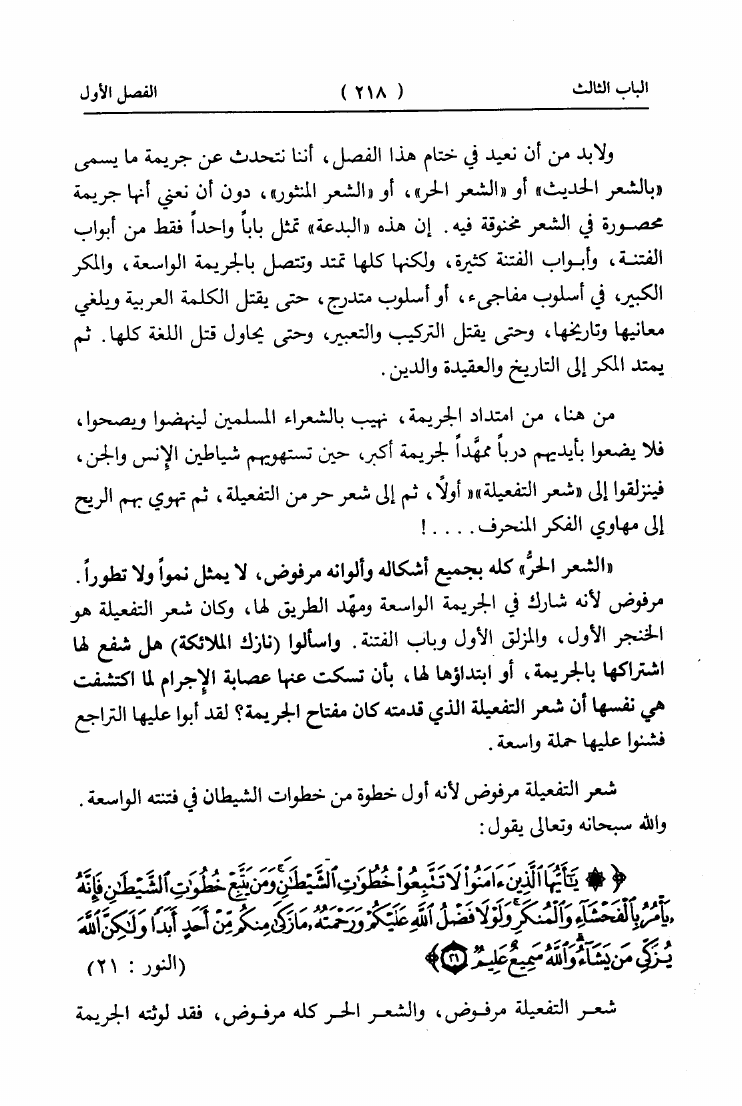 الباب الثالث ( ٢١٨ ) الفصل الأول
ولابد من أن نعيد في ختام هذا الفصل، أننا نتحدث عن جريمة ما يسمى
«بالشعر الحديث» أو «الشعر الحر»، أو «الشعر المنثور»، دون أن نعني أنها جريمة
محصورة في الشعر مخنوقة فيه. إن هذه «البدعة» تمثل باباً واحداً فقط من أبواب
الفتنة، وأبواب الفتنة كثيرة، ولكنها كلها تمتد وتتصل بالجريمة الواسعة، والمكر
الكبير، في أسلوب مفاجىء، أو أسلوب متدرج، حتى يقتل الكلمة العربية ويلغي
معانيها وتاريخها، وحتى يقتل التركيب والتعبير، وحتى يحاول قتل اللغة كلها. ثم
يمتد المكر إلى التاريخ والعقيدة والدين.
من هنا، من امتداد الجريمة، نهيب بالشعراء المسلمين لينهضوا ويصحوا،
فلا يضعوا بأيديهم درباً ممهَّداً لجريمة أكبر، حين تستهويهم شياطين الإنس والجن،
فينزلقوا إلى «شعر التفعيلة»« أولًا، ثم إلى شعر حر من التفعيلة، ثم تهوي بهم الريح
إلى مهاوي الفكر المنحرف. . . . !
«الشعر الحرُّ» كله بجميع أشكاله وألوانه مرفوض، لا يمثل نمواً ولا تطوراً.
مرفوض لأنه شارك في الجريمة الواسعة ومهّد الطريق لها، وكان شعر التفعيلة هو
الخنجر الأول، والمزلق الأول وباب الفتنة. واسألوا (نازك الملائكة) هل شفع لها
اشتراكها بالجريمة، أو ابتداؤها لها، بأن تسكت عنها عصابة الإجرام لما اكتشفت
هي نفسها أن شعر التفعيلة الذي قدمته كان مفتاح الجريمة؟ لقد أبوا عليها التراجع
فشنوا عليها حملة واسعة.
شعر التفعيلة مرفوض لأنه أول خطوة من خطوات الشيطان في فتنته الواسعة.
والله سبحانه وتعالى يقول:
﴿ ۞ يَٰٓأَيُّهَا ٱلَّذِينَ ءَامَنُوا۟ لَا تَتَّبِعُوا۟ خُطُوَٰتِ ٱلشَّيْطَٰنِ ۚ وَمَن يَتَّبِعْ خُطُوَٰتِ ٱلشَّيْطَٰنِ فَإِنَّهُۥ
يَأْمُرُ بِٱلْفَحْشَآءِ وَٱلْمُنكَرِ ۚ وَلَوْلَا فَضْلُ ٱللَّهِ عَلَيْكُمْ وَرَحْمَتُهُۥ مَا زَكَىٰ مِنكُم مِّنْ أَحَدٍ أَبَدًا وَلَٰكِنَّ ٱللَّهَ
يُزَكِّى مَن يَشَآءُ ۗ وَٱللَّهُ سَمِيعٌ عَلِيمٌ ٢١﴾ (النور : ٢١)
شعر التفعيلة مرفوض، والشعر الحر كله مرفوض، فقد لوثته الجريمة